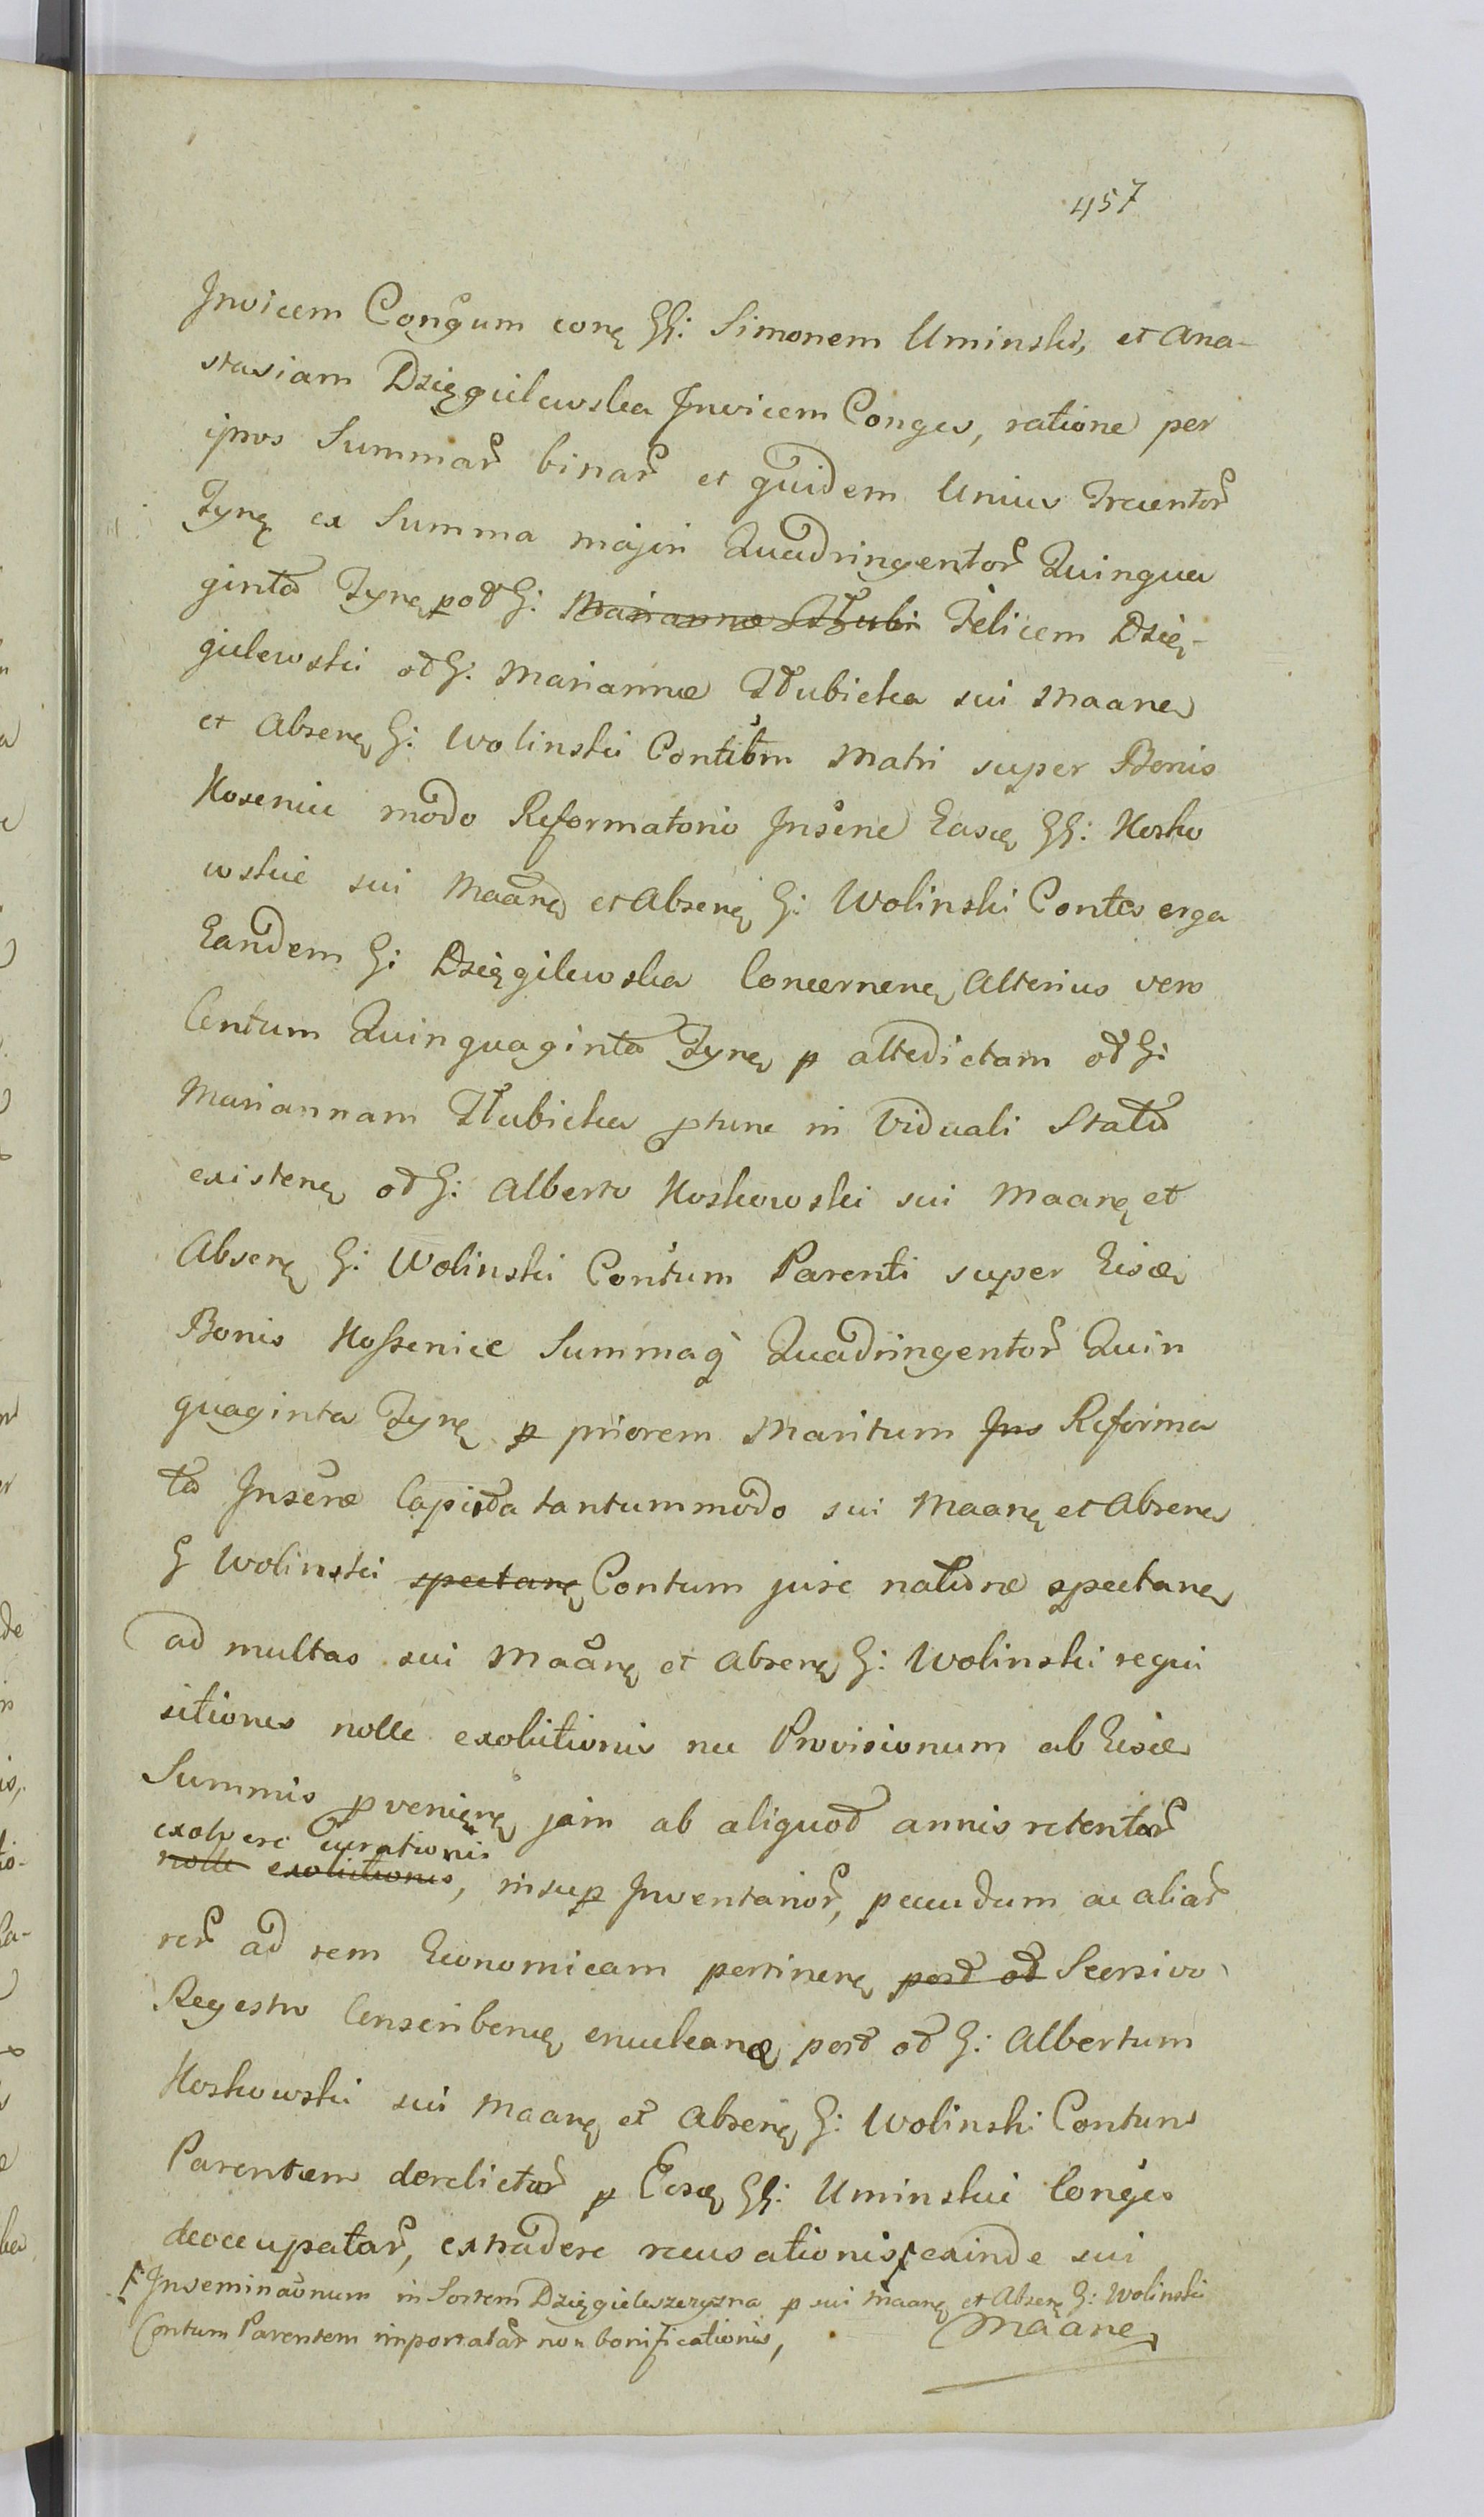 457
Invicem Congum conę GG: Simonem Uminski, et Ana-
stasiam Dzięgielewska Invicem Conges, ratione per
ipsos Summar binar et quidem Unius Trecentor
Tynę ex Summa majori Quadringentor Quinqua
ginta Tynę p od G: Marianna Dłubi Felicem Dzię-
gielewski od G: Mariannæ Dłubicka sui Maanę
et Absenę G: Wolinski Contūm Matri super Bonis
Kosenice modo Reformatorio Insēne Easdę GG: Kosko
wskie sui Maanę et Absenę G: Wolinski Contes erga
Eandem G: Dzięgilewska Concernenę Alterius vero
Centum Quinquaginta Tynę p attedictam od G:
Mariannam Dłubicka ptunc in Viduali Statu
existenę od G: Alberto Koskowski sui Maanę et
Absenę G: Wolinski Contum Parenti super Eisdę
Bonis Kossenice Summaq Quadringentor Quin
quaginta Tynę p priorem Maritum Ins Reforma
ta Insēræ Capida tantummodo sui Maanę et Absenę
G Wolinski spectanę Contum jure naturæ spectanę
ad multas sui Maanę et Absenę G: Wolinski requi
sitiones nolle exolutionis nec Provisionum ab Eisdę
Summis pvenienę jam ab aliquod annis retentar
exolvere curationis
nolle exolutionis, insup Inventarior, pecudum ac aliar
rer ad rem Economicam pertinenę post od Scorsivo
Regestro Conscribenę enucleanę post od G: Albertum
Koskowski sui Maanę et Absenę G: Wolinski Contum
Parentem derelictar p Eosdę GG: Uminskie Conges
deoccupatar, extradere recusationis, exinde sui
F Inseminaōnum in Sortem Dzięgielewszczyzna p sui Maanę et Absenę G: Wolinski
Contum Parentem importatar non bonificationis,
Maanę